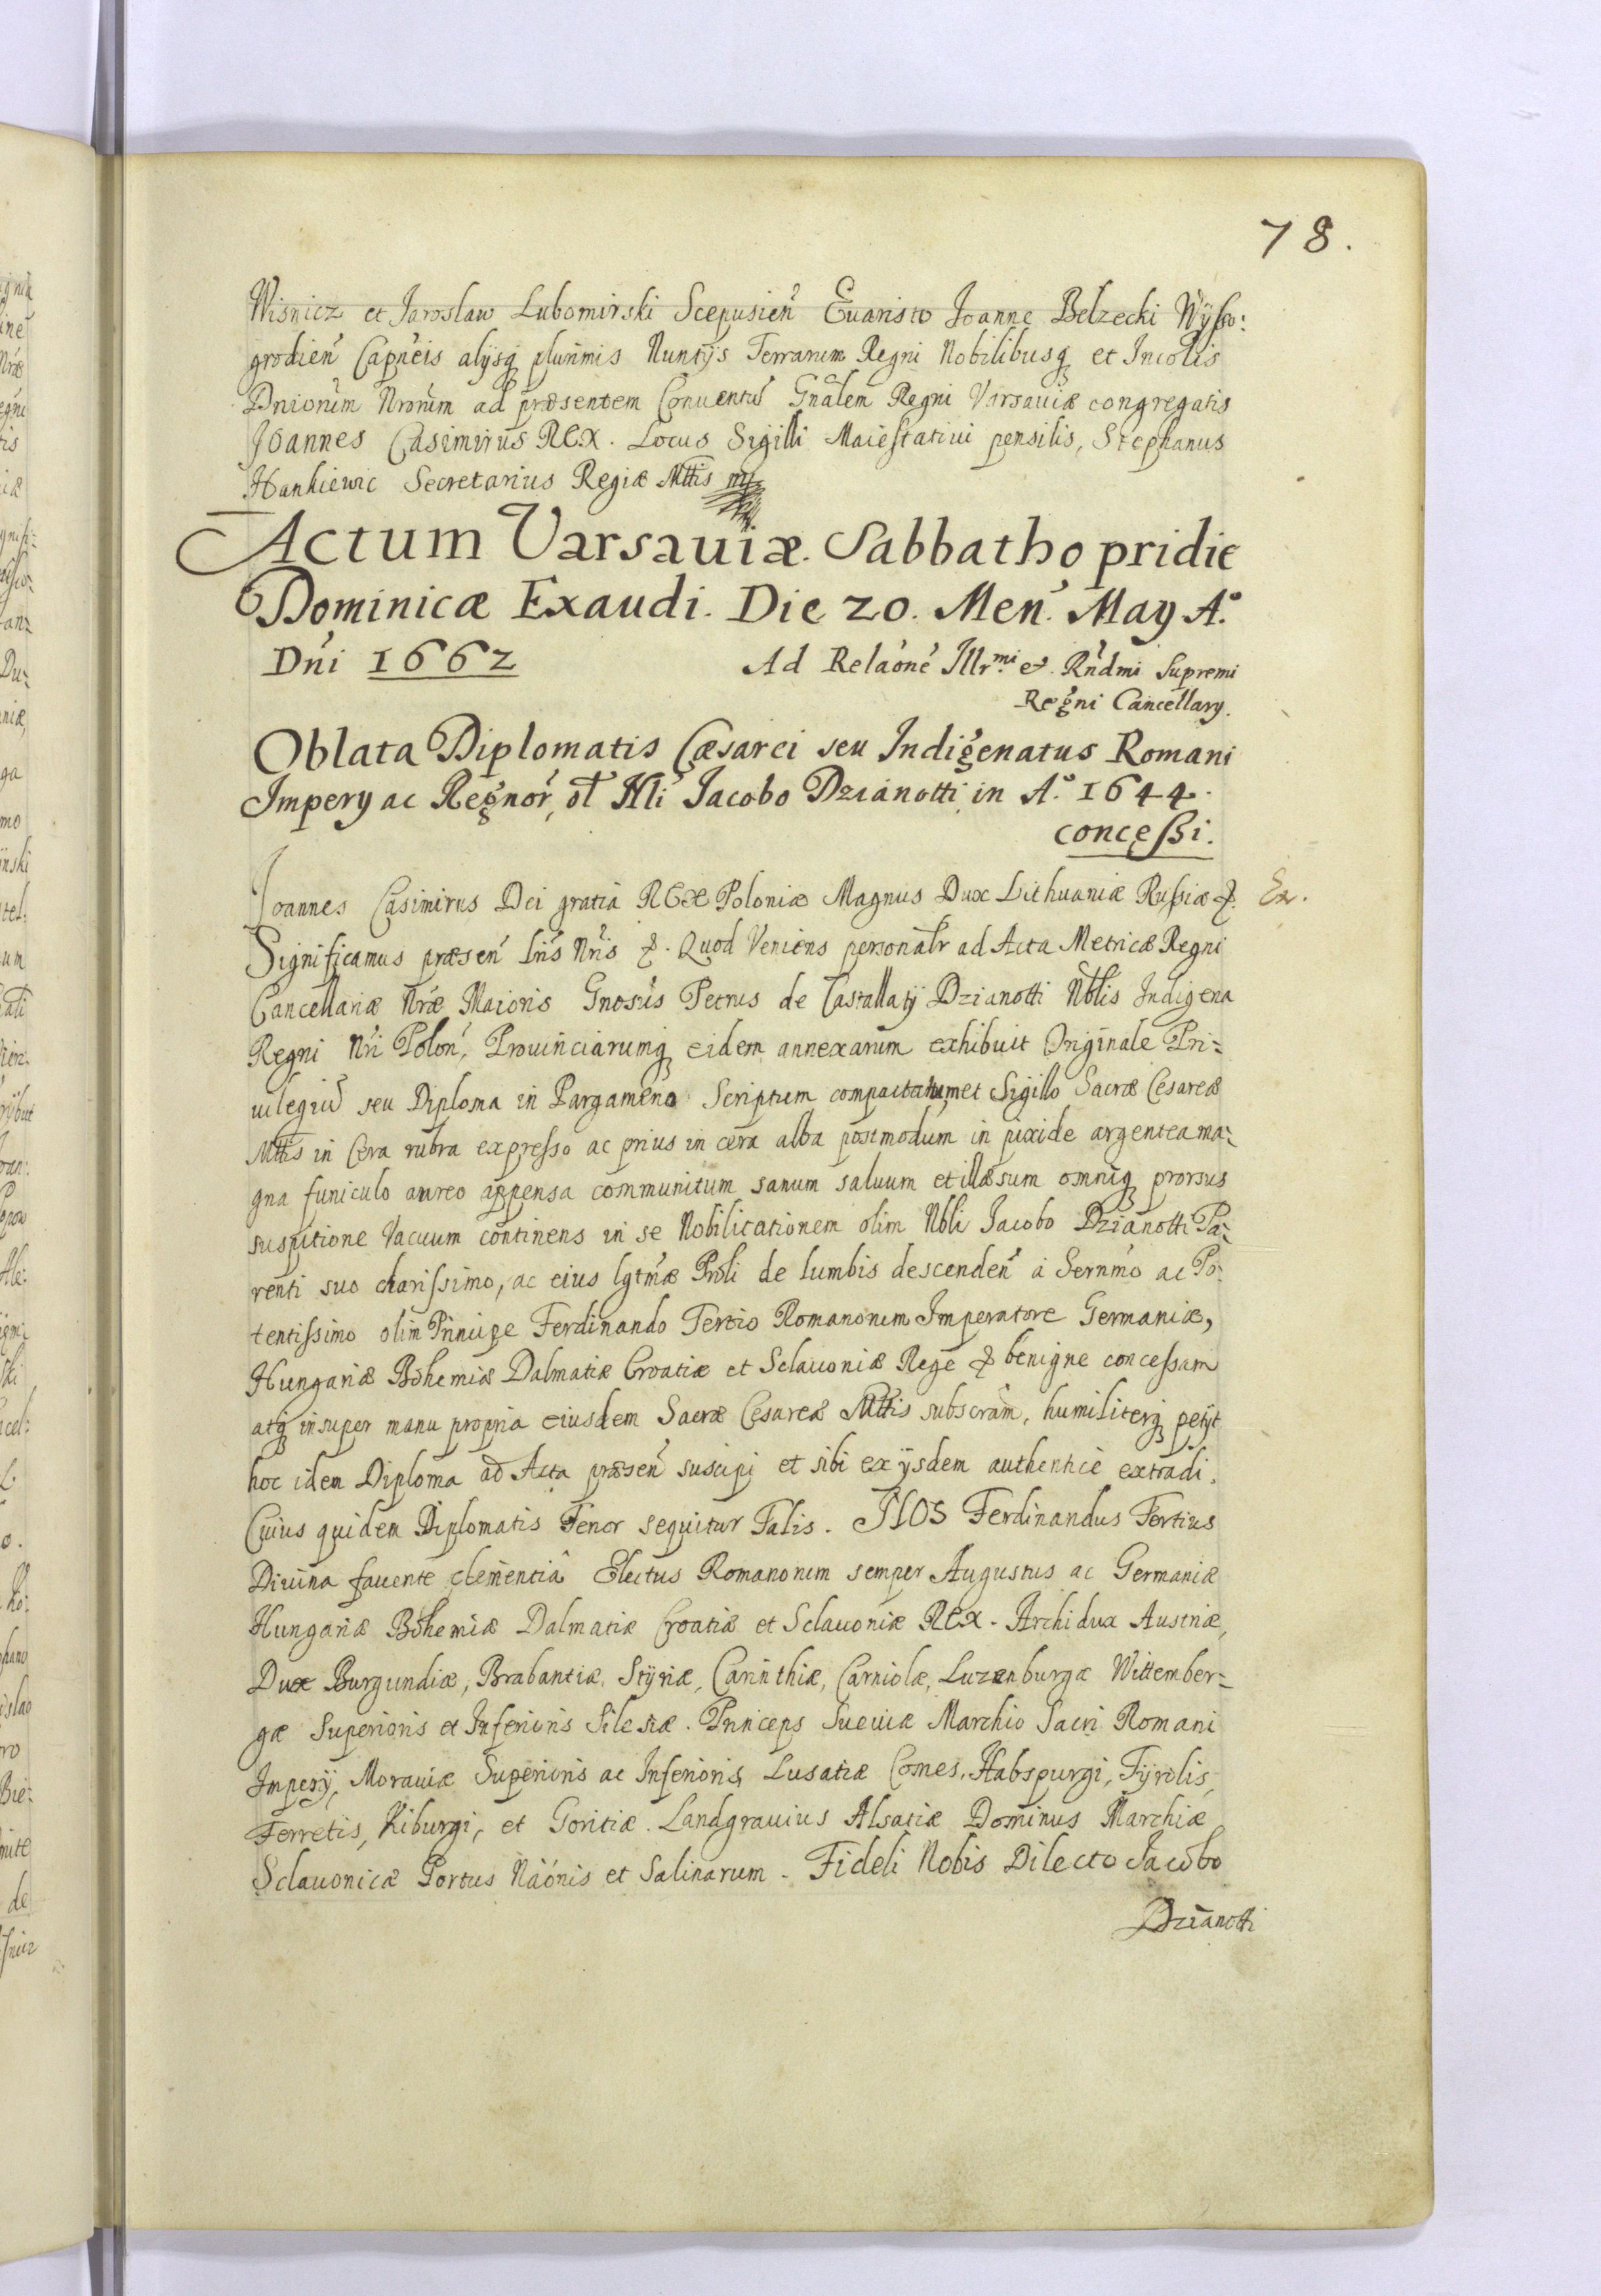 78.
Wisnicz et Jaroslaw Lubomirski Scepusien̄ Evaristo Joanne Belzecki Wÿsso:
grodien̄ Capn̄eis alÿsq₃ plurimis Nuntÿs Terrarum Regni Nobilibusq₃ et Incolis
Dn̄iorum Nr̄orum ad præsentem Conuentū Gn̄alem Regni Varsauiæ congregatis
Joannes Casimirus REX. Locus Sigilli Maiestatiui pensilis, Stephanus
Hankiewic Secretarius Regiæ Mttis mp
Actum Varsauiæ. Sabbatho pridie
Dominicæ Exaudi. Die 20. Men̄. May A.º
Dn̄i 1662
Ad Relaōnē Illr.mi et. Rn̄dmi Supremi
Regni Cancellary.
Oblata Diplomatis Cæsarei seu Indigenatus Romani
Impery ac Regnor̄, ol̄ Nli Jacobo Dzianotti in A.º 1644.
concessi.
Joannes Casimirus Dei gratia REX Poloniæ Magnus Dux Lithuaniæ Russiæ &.
Ex.
Significamus præsen̄ lrīs Nrīs &. Quod Veniens personalr̄ ad Acta Metricæ Regni
Cancellariæ Nr̄æ Maioris Gn̄osus Petrus de Castallatÿ Dzianotti Nb̄lis Indigena
Regni Nr̄i Polon̄, Prouinciarumq₃ eidem annexarum exhibuit Originale Pri=
uilegiū seu Diploma in Pargameno Scriptum compactatumet Sigillo Sacræ Cesareæ
Mttis in Cera rubra expresso ac prius in cera alba postmodum in pixide argentea ma=
gna funiculo aureo appensa communitum sanum saluum et illæsum omniq₃ prorsus
suspitione Vacuum continens in se Nobilitationem olim Nbli Jacobo Dzianotti Pa=
renti suo charissimo, ac eius lgtm̄æ Proli de lumbis descenden̄ à Sern̄mo ac Po=
tentissimo olim Principe Ferdinando Tertio Romanorum Imperatore Germaniæ,
Hungariæ Bohemiæ Dalmatiæ Croatiæ et Sclauoniæ Rege & benigne concessam
atq₃ insuper manu propria eiusdem Sacræ Cesareæ Mttis subscram̄, humiliterq₃ petÿt
hoc idem Diploma ad Acta præsen̄ suscipi et sibi ex ÿsdem authenticè extradi.
Cuius quidem Diplomatis Tenor sequitur Talis. NOS Ferdinandus Tertius
Diuina fauente clementiâ Electus Romanorum semper Augustus ac Germaniæ
Hungariæ Bohemiæ Dalmatiæ Croatiæ et Sclauoniæ REX. Archidux Austriæ,
Dux Burgundiæ, Brabantiæ, Stÿriæ, Carinthiæ, Carniolæ, Luzenburgæ Wittember=
gæ Superioris et Inferioris Silesiæ. Princeps Sueuiæ Marchio Sacri Romani
Imperÿ, Morauiæ Superioris ac Inferioris Lusatiæ Comes, Habspurgi, Tÿrolis,
Ferretis, Kiburgi, et Goritiæ. Landgrauius Alsatiæ Dominus Marchiæ
Sclauonicæ Portus Naónis et Salinarum. Fideli Nobis Dilecto Jacobo
Dzianotti